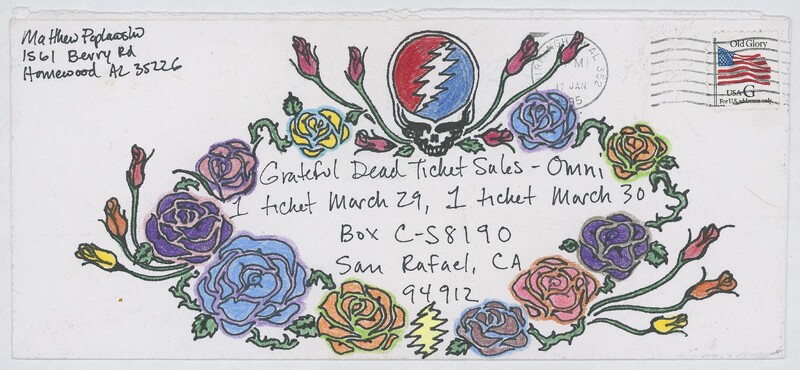 Matthew
1561 Berry Rd
Homewood AL 35226
AL 352
17 JAN
Old Glory
USA G
For U.S. addresses only
Grateful Dead Ticket Sales - Omni
1 ticket March 29, 1 ticket March 30
Box C-S8190
San Rafael, CA
94912